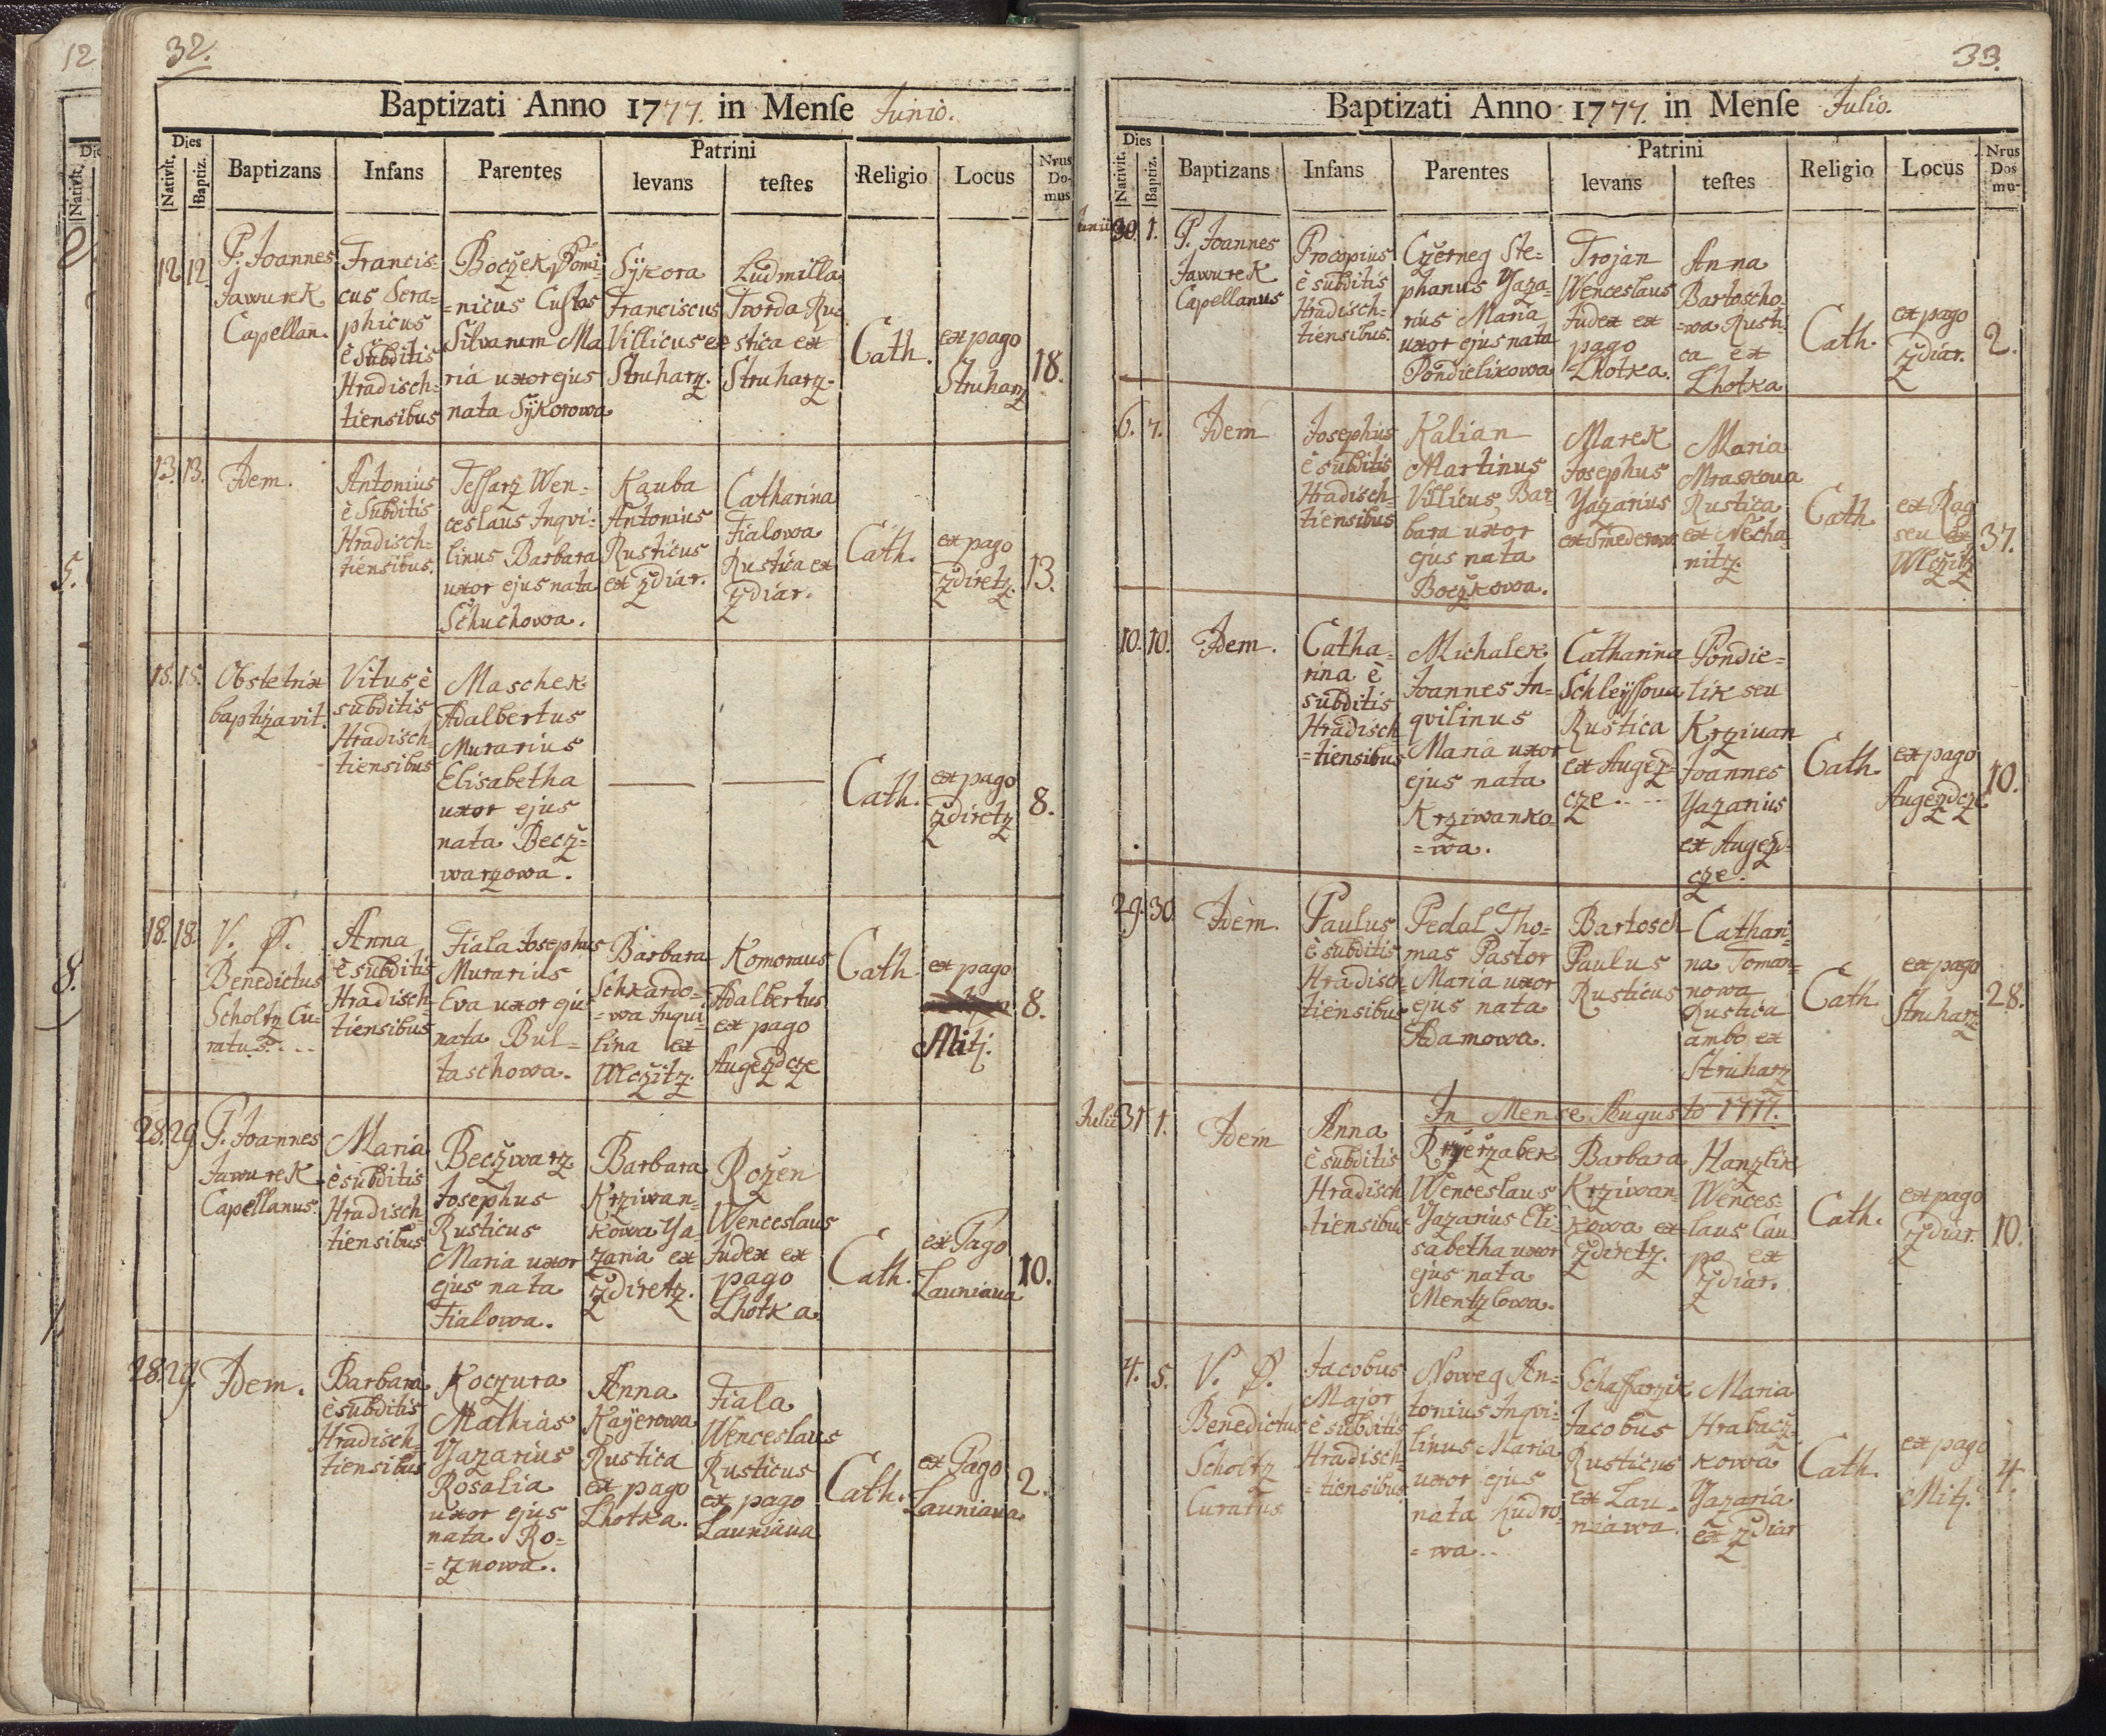 12
32.
Baptizati Anno 1777. in Menſe Junio.
Dies
Nativit.
Baptiz.
Baptizans
Infans
Parentes
Patrini
levans
teſtes
Religio
Locus
Nrus
Do-
mus
12. 12.
P. Joannes
Jawurek
Capellan.
Francis=
cus Sera=
phicus
è Subditis
Hradisch=
tiensibus
Boczek Domi=
=nicus Custos
Silvarum Ma
ria uxor ejus
nata Sÿkorowa
Sÿkora
Franciscus
Villicus ex
Struharz.
Ludmilla
Twrda Ru
stica ex
Struharz.
Cath.
ex pago
Struharz
18.
13. 13.
Idem.
Antonius
è Subditis
Hradisch=
tiensibus.
Tessarz Wen=
ceslaus Inqvi=
linus Barbara
uxor ejus nata
Schuchowa.
Kauba
Antonius
Rusticus
ex Zdiar.
Catharina
Fialowa
Rustica ex
Zdiar.
Cath.
ex pago
Zdiretz.
13.
15. 15.
Obstetrix
baptizavit.
Vitus è
subditis
Hradisch=
tiensibus
Maschek
Adalbertus
Murarius
Elisabetha
uxor ejus
nata Becz=
warzowa.
Cath.
ex pago
Zdiretz
8.
18. 18.
V. P.
Benedictus
Scholtz Cu=
ratus....
Anna
è subditis
Hradisch=
tiensibus
Fiala Josephus
Murarius
Eva uxor ejus
nata Bul=
taschowa.
Barbara
Schkardo=
=wa Inqui=
lina ex
Wlczitz.
Komoraus
Adalbertus
ex pago
Augezdcze
Cath.
ex pago
Mitj.
8.
28. 29.
P. Joannes
Jawurek
Capellanus.
Maria
è subditis
Hradisch=
tiensibus
Beczwarz
Josephus
Rusticus
Maria uxor
ejus nata
Fialowa.
Barbara
Krziwan=
kowa Ya=
zaria ex
Zdiretz.
Rozen
Wenceslaus
Judex ex
pago
Lhotka
Cath.
ex Pago
Launiaua
10.
28. 29.
Idem.
Barbara
è subditis
Hradisch=
tiensibus
Koczura
Mathias
Yazarius
Rosalia
uxor ejus
nata Ro=
=znowa.
Anna
Kaÿerowa
Rustica
ex pago
Lhotka.
Fiala
Wenceslaus
Rusticus
ex pago
Launiaua
Cath.
ex Pago
Launiaua
2.
33.
Baptizati Anno 1777. in Menſe Julio.
Dies
Nativit.
Baptiz.
Baptizans
Infans
Parentes
Patrini
levans
teſtes
Religio
Locus
Nrus
Dos
mu-
Junii 30. 1.
P. Joannes
Jawurek
Capellanus
Procopius
è subditis
Hradisch=
tiensibus.
Czerneg Ste=
phanus Yaza=
rius Maria
uxor ejus nata
Pondielikowa
Trojan
Wenceslaus
Judex ex
pago
Lhotka.
Anna
Bartoscho=
=wa Rusti
ca ex
Lhotka
Cath.
ex pago
Zdiar.
2.
6. 7.
Idem
Josephus
è subditis
Hradisch=
tiensibus
Kalian
Martinus
Villicus, Bar
bara uxor
ejus nata
Boczkowa.
Marek
Josephus
Yazarius
ex Smederow
Maria
Mraskoua
Rustica
ex Necha=
nitz.
Cath
ex Rag
seu ex
Wlczitz
37.
10. 10.
Idem.
Catha=
rina è
subditis
Hradisch
=tiensibus
Michalek
Joannes In=
qvilinus
Maria uxor
ejus nata
Krziwanko=
=wa.
Catharina
Schleÿssoua
Rustica
ex Augez=
cze....
Pondie=
lik seu
Krziuan
Joannes
Yazarius
ex Augezd=
cze.
Cath.
ex pago
Augezdcze
10.
29. 30
Idem.
Paulus
è subditis
Hradisch
tiensibus
Pedal Tho=
mas Pastor
Maria uxor
ejus nata
Adamowa.
Bartosch
Paulus
Rusticus
Cathari=
na Toman=
nowa
Rustica
ambo ex
Struharz
Cath.
ex pago
Struharz
28.
In Mense Augusto 1777.
Julii 31 1.
Idem
Anna
è subditis
Hradisch
=tiensibus
Rzerzabek
Wenceslaus
Yazarius Eli=
sabetha uxor
ejus nata
Mentzlowa.
Barbara
Krziwan=
kowa ex
Zdiretz.
Hanzlik
Wences=
laus Cau
po ex
Zdiar.
Cath.
ex pago
Zdiar.
10.
4. 5.
V. P.
Benedictus
Scholtz
Curatus
Jacobus
Major
è subditis
Hradisch=
=tiensibus
Noweg An=
tonius Inqvi=
linus Maria
uxor ejus
nata Kudro=
=wa..
Schaffarzik
Jacobus
Rusticus
ex Lau=
niawa.
Maria
Hrabacz=
kowa
Yazaria
ex Zdiar
Cath.
ex pago
Mitj.
4.